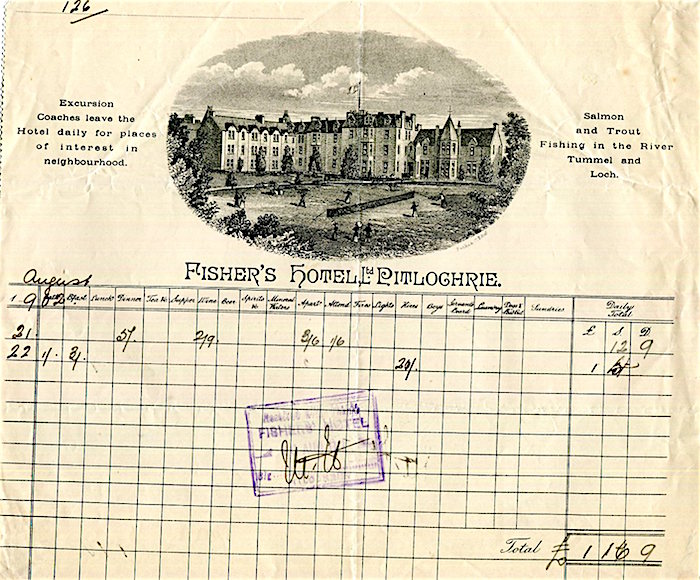 126
Excursion
Coaches leave the
Hotel daily for places
of interest in
neighbourhood.
Salmon
and Trout
Fishing in the River
Tummel and
Loch.
FISHER'S HOTEL, Ltd PITLOCHRIE.
August
190 Bfast Lunch Dinner Tea &c Supper Wine Beer Spirits &c Mineral Waters Apart Attend Fires Lights Hires Boys Servants Board Laundry Sundries Daily Total
£ S D
21. 5/. 2/9. 3/6 1/6 12 9
22 1/. 3/. 20/. 1
FISHER'S HOTEL
Total £ 1 16 9